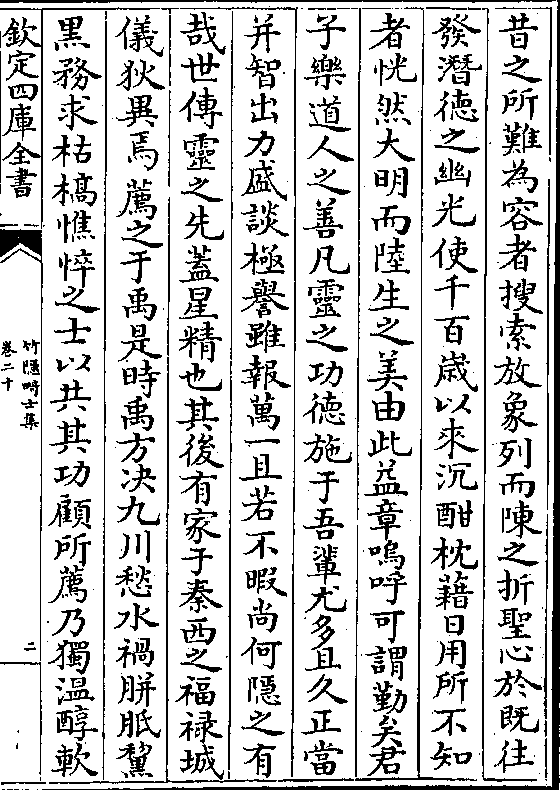 昔之所難為容者搜索放象列而陳之折聖心於既往
發潛德之幽光使千百歳以來沉酣枕藉日用所不知
者恍然大明而陸生之美由此益章嗚呼可謂勤矣君
子樂道人之善凡靈之功德施于吾輩尤多且久正當
并智出力盛談極譽雖報萬一且若不暇尚何隱之有
哉世傳靈之先蓋星精也其後有家于秦西之福禄城
儀狄異焉薦之于禹是時禹方決九川愁水禍胼胝黧
黑務求枯槁憔悴之士以共其功顧所薦乃獨温醇軟
欽定四庫全書
竹隠畸士集
卷二十
二